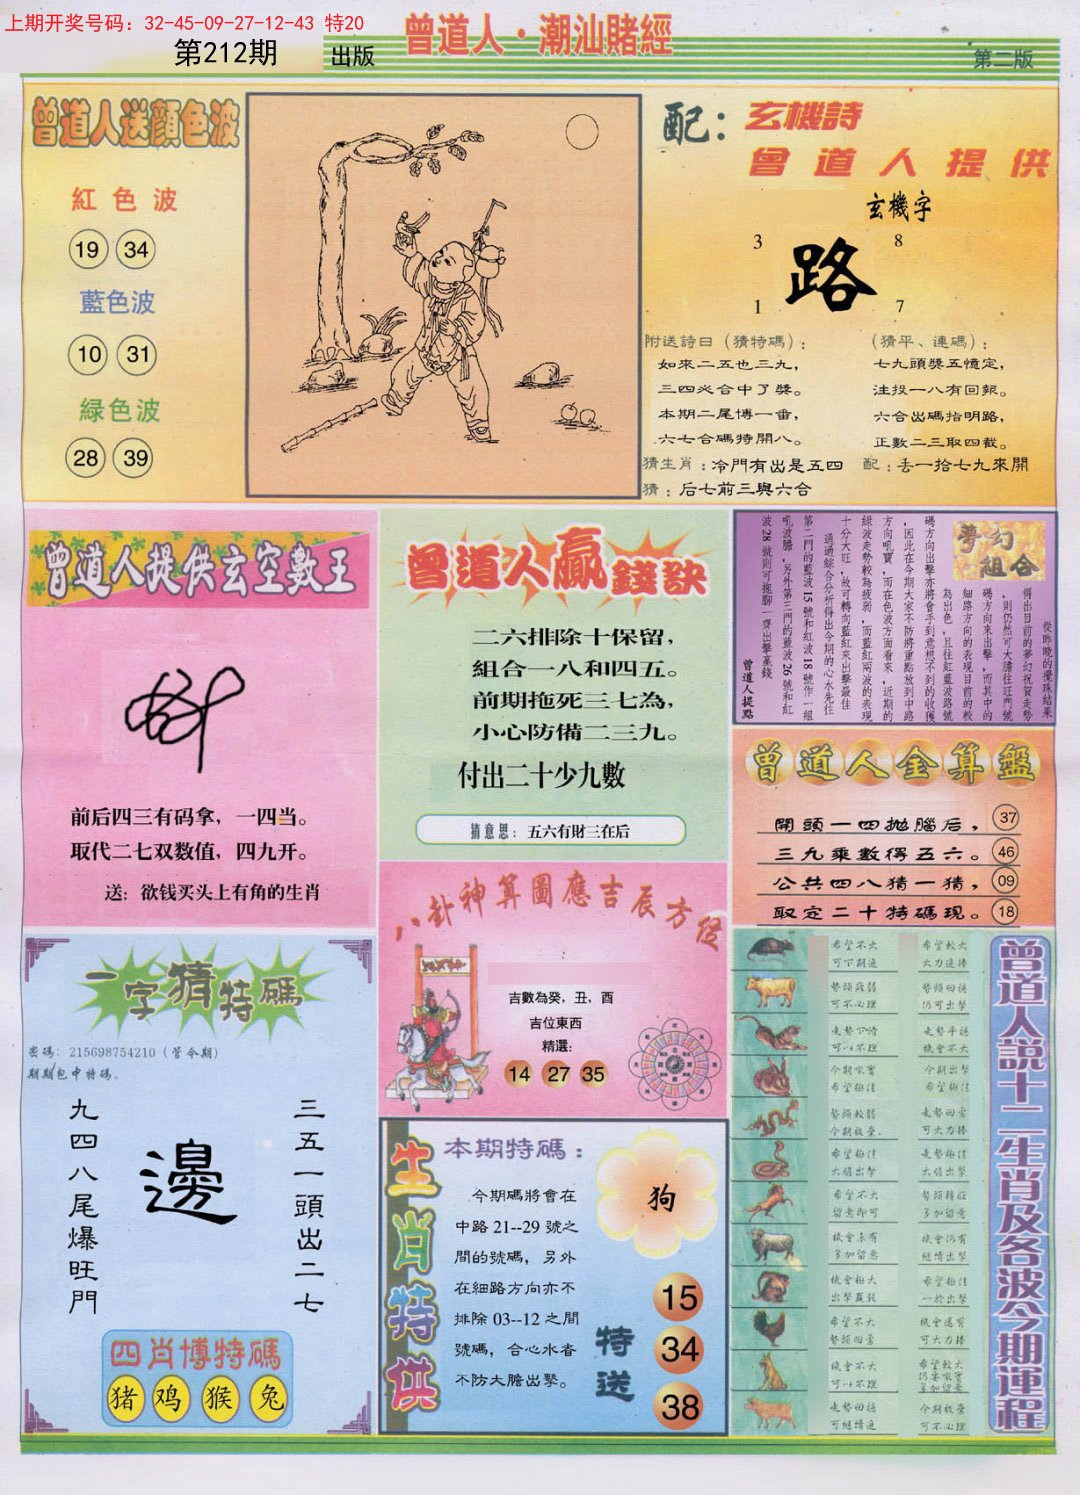 上期开奖号码：32-45-09-27-12-43 特20
第212期
出版
曾道人·潮汕賭經
第二版
曾道人送顏色波
紅色波
19 34
藍色波
10 31
緑色波
28 39
配：
玄機詩
曾道人提供
玄機字
3 8
路
1 7
附送詩曰（猜特碼）：
如來二五也三九，
三四必合中了獎。
本期二尾博一番，
六七合碼特開八。
（猜平、連碼）：
七九頭獎五憶定，
注投一八有回報。
六合出碼指明路，
正數二三取四截。
猜生肖：冷門有出是五四
配：丢一拾七九來開
猜：后七前三與六合
曾道人提供玄空數王
前后四三有码拿，一四当。
取代二七双数值，四九开。
送：欲钱买头上有角的生肖
曾道人赢錢訣
二六排除十保留，
組合一八和四五。
前期拖死三七為，
小心防備二三九。
付出二十少九數
猜意思：五六有財三在后
夢幻組合
從昨晚的攪珠結果
得出目前的夢幻祝賀走勢
，則仍然可大膽往旺門號
碼方向來出擊，而其中的
細路方向的表現目前的較
為出色，且往紅藍波路號
碼方向出擊亦將會手到意想不到的收獲
，因此在今期大家不防將重點放到中路
方向吼寶，而在色波方面看來，近期的
綠波走勢較為疲弱，而藍紅兩波的表現
十分大旺，故可轉向藍紅來出擊最佳
通過綜合分析得出今期的心水先往
第二門的藍波15號和紅波18號作一組
吼波膽，另外第三門的藍波26號和紅
波28號則可拖腳一齊出擊赢錢
曾道人提點
曾道人金算盤
開頭一四拋腦后，37
三九乘數得五六。46
公共四八猜一猜，09
取定二十特碼現。18
八卦神算圖應吉辰方位
吉數為癸，丑，酉
吉位東西
精選：
14 27 35
一字猜特碼
密碼：215698754210（管令期）
期期包中特碼、
九四八尾爆旺門
邊
三五一頭出二七
四肖博特碼
猪 鸡 猴 兔
生肖特供
本期特碼：
今期碼將會在
中路21--29號之
間的號碼，另外
在細路方向亦不
排除03--12之間
號碼，合心水者
不防大膽出擊。
狗
特送
15
34
38
曾道人說十二生肖及各波今期運程
希望不大
可下期追
希望較大
大力追捧
可不必理
仍可出擊
可以不理
機會不大
今期出擊
希望極佳
可大力捧
大膽出擊
希望不大
留意即可
多加留意
機會未有
多加留意
機會仍有
繼續出擊
機會極大
出擊贏錢
希望極佳
一於出擊
希望不大
可大力捧
機會不大
可以不理
希望較大
多加留意
可繼續追
可不必理